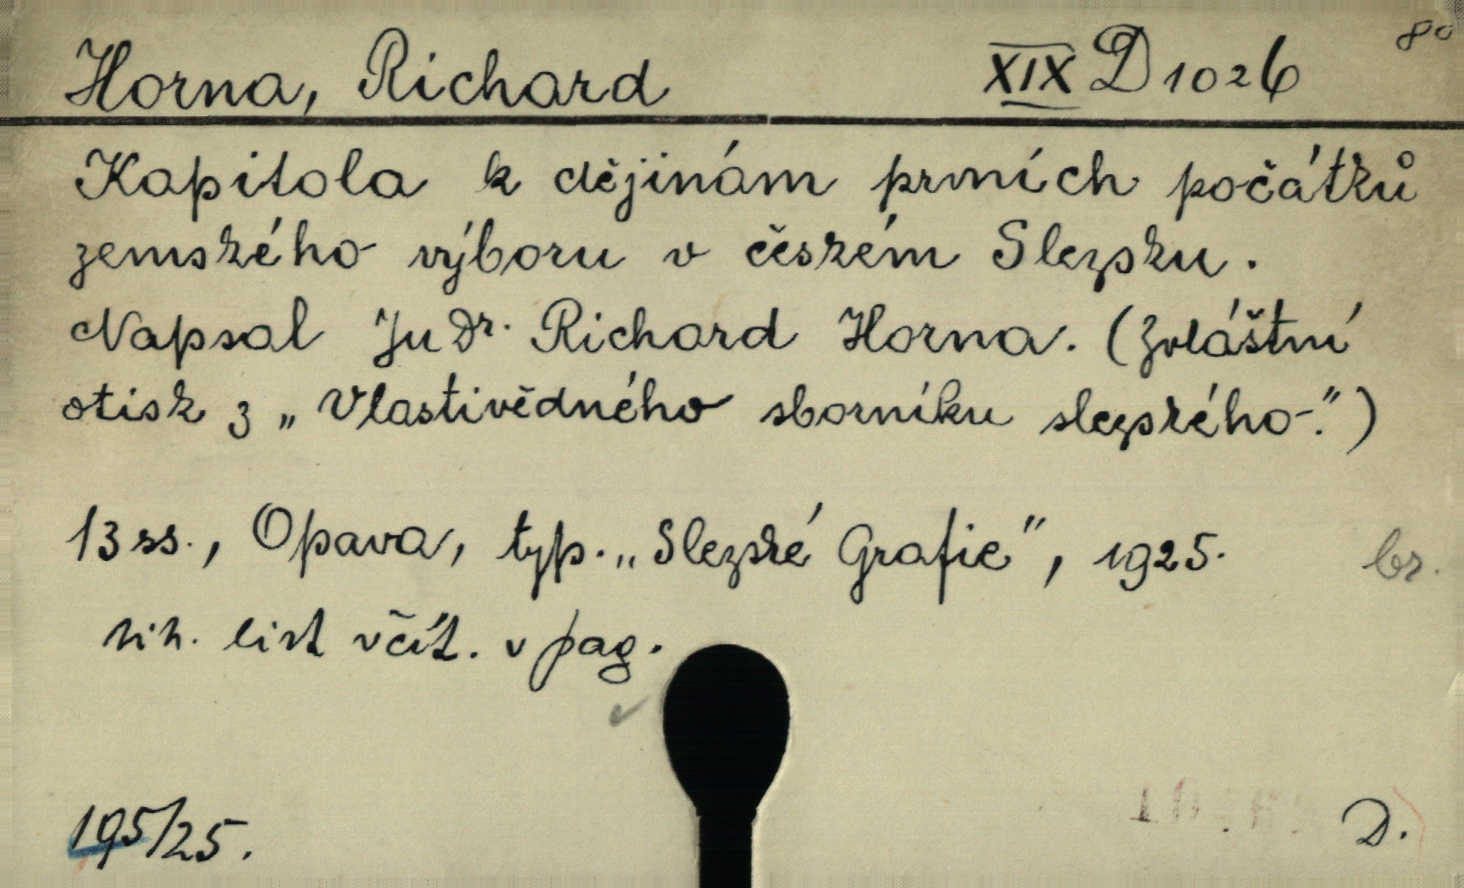 Horna, Richard XIX D 1026 8°
Kapitola k dějinám prvních počátků
zemského výboru v českém Slezsku.
Napsal JuDr. Richard Horna. (Zvláštní
otisk z „Vlastivědného sborníku slezského.")
13 ss., Opava, typ. „Slezské Grafie", 1925. br.
tih. list včít. v pag.
195/25. D.